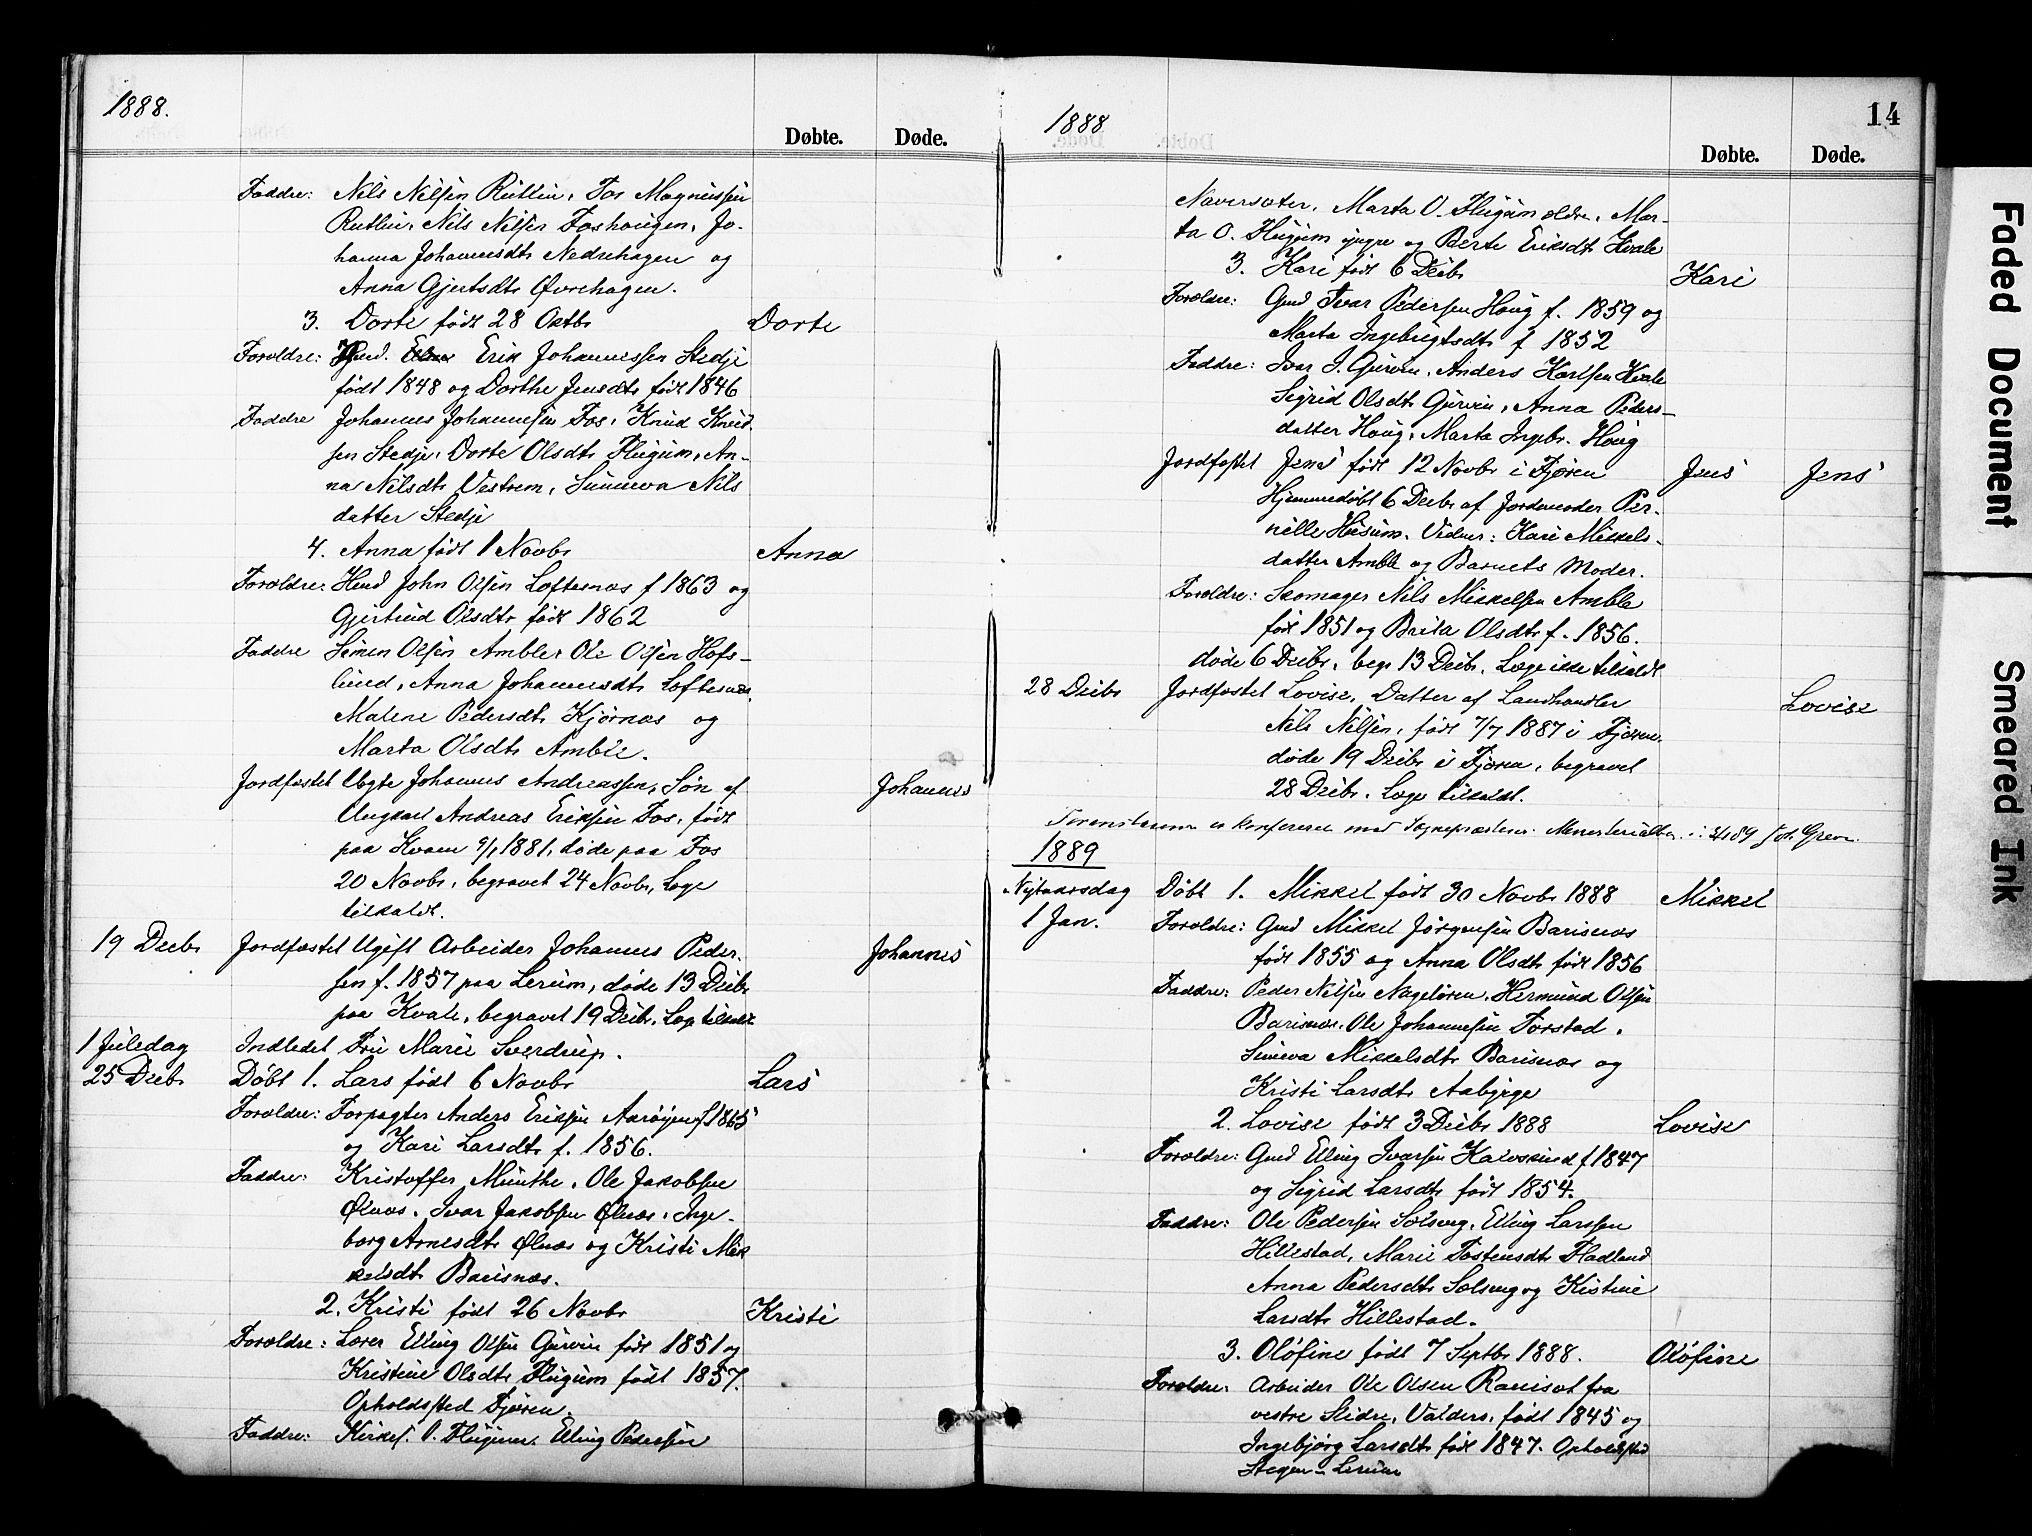 1888.
Døbte. Døde.
Faddre: Nils Nilsen Rutlin, Tor Magnussen
Rutlin, Nils Nilsen Foshaugen, Jo-
hanna Johannesdtr Nedrehagen og
Anna Gjertsdtr Øvrehagen.
3. Dorte født 28 Oktbr Dorte
Forældre: Gmd. Erik Johannessen Stedje
født 1848 og Dorthe Jensdtr født 1846
Faddre Johannes Johannesen Fos, Knud Knud-
sen Stedje, Dorte Olsdtr Flugum, An-
na Nilsdtr Vestrem, Sunneva Nils
datter Stedje
4. Anna født 1 Novbr Anna
Forældre: Hmd John Olsen Loftesnæs f 1863 og
Gjertrud Olsdtr født 1862
Faddre Simen Olsen Amble, Ole Olsen Hofs-
lund, Anna Johannesdtr Loftesnæs
Malene Pedersdtr Kjørnæs og
Marta Olsdtr Amble.
Jordfæstet Ugte Johannes Andreassen, Søn af
Ungkarl Andreas Eriksen Fos, født
paa Kvam 1881, døde paa Fos
20 Novbr, begravet 24 Novbr, Læge
tilkaldt.
Johannes
19 Decbr Jordfæstet Ugift Arbeider Johannes Peder-
sen f. 1857 paa Lerum, døde 13 Decbr
paa Kvale, begravet 19 Decbr, Læge tilkaldt
Johannes
1 Juledag Indledet Fru Marie Sverdrup.
25 Decbr Døbt 1. Lars født 6 Novbr Lars
Forældre: Forpagter Anders Eriksen Aarøyen f 1865
og Kari Larsdtr f. 1856.
Faddre: Kristoffer Munthe, Ole Jakobsen
Ølnæs, Ivar Jakobsen Ølnæs, Inge-
borg Arnesdtr Ølnæs og Kristi Mik
kelsdtr Barsnæs.
2. Kristi født 26 Novbr Kristi
Forældre: Lærer Elling Olsen Gurvin født 1851 og
Kristine Olsdtr Flugum født 1857.
Opholdssted Fjøren.
Faddre: Kirkes. O. Flugum, Elling Pedersen
1888
14
Døbte. Døde.
Naversæter, Marta O. Flugum ældre, Mar-
ta O. Flugum yngre og Berte Eriksdtr Kvale
3. Kari født 6 Decbr Kari
Forældre: Gmd Ivar Pedersen Houg f. 1859 og
Marta Ingebrigtsdtr f 1852
Faddre: Ivar I. Gurvin, Anders Karlsen Kvale
Sigrid Olsdtr Gurvin, Anna Peders-
datter Houg, Marta Ingebr. Houg
Jordfæstet Jens født 12 Novbr i Fjøren Jens Jens
Hjemmedøbt 6 Decbr af Jordemoder Per-
nille Husum. Vidner: Kari Mikkels-
datter Amble og Barnets Moder.
Forældre: Skomager Nils Mikkelsen Amble
født 1851 og Brita Olsdtr f. 1856.
døde 6 Decbr, begr 13 Decbr. Læge ikke tilkaldt
28 Decbr Jordfæstet Lovise, Datter af Landhandler Lovise
Nils Nilsen, født 7/7 1887 i Fjøren
døde 19 Decbr i Fjøren, begravet
28 Decbr. Læge tilkaldt.
Foranstaaende er konfereret med Sognepræstens Ministerialbog
1889
Nytaarsdag Døbt 1. Mikkel født 30 Novbr 1888 Mikkel
1 Jan. Forældre: Gmd Mikkel Jørgensen Barsnæs
født 1855 og Anna Olsdtr født 1856
Faddre: Peder Nilsen Nagløren, Hermund Olsen
Barsnæs, Ole Johannesen Torstad,
Suneva Mikkelsdtr Barsnæs og
Kristi Larsdtr Aabyrge
2. Lovise født 3 Decbr 1888 Lovise
Forældre: Gmd Elling Ivarsen Kalvskind f 1847
og Sigrid Larsdtr født 1854.
Faddre: Ole Pedersen Solsvig, Elling Larssen
Hillestad, Marie Tostensdtr Fladland
Anna Pedersdtr Solsvig og Kistine
Larsdtr Hillestad.
3. Olófine født 7 Septbr 1888. Olófine
Forældre: Arbeider Ole Olsen Raniset fra
vestre Slidre, Valders, født 1845 og
Ingebjørg Larsdtr født 1847. Opholdssted
Stegen - Lerum
Faded Document
Smeared Ink